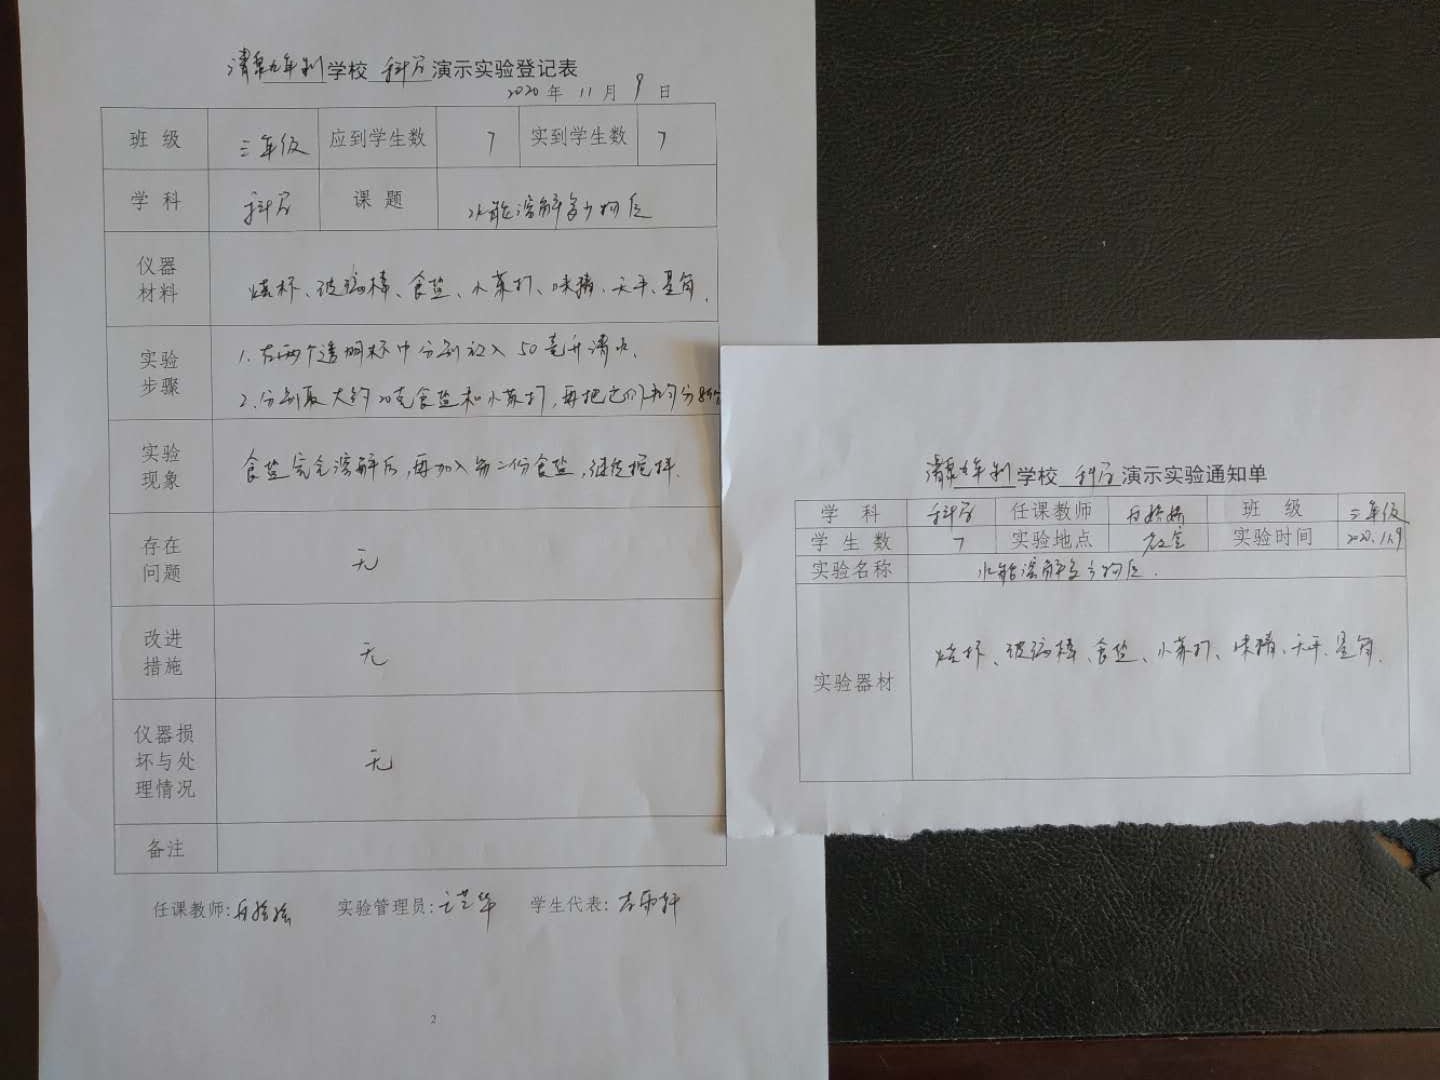 清泉九年制学校 科学演示实验登记表
2020年 11月 9日
班 级 三年级 应到学生数 7 实到学生数 7
学 科 科学 课 题 水能溶解多少物质
仪器
材料
烧杯、玻璃棒、食盐、小苏打、味精、天平、量筒.
实验
步骤
1.在两个透明杯中分别放入50毫升清水.
2.分别取大约20克食盐和小苏打,再把它们平均分8份
实验
现象
食盐完全溶解后,再加入第二份食盐,继续搅拌.
存在
问题
无
改进
措施
无
仪器损
坏与处
理情况
无
备注
任课教师: 实验管理员: 学生代表:
2
清泉九年制学校 科学演示实验通知单
学 科 科学 任课教师 班 级 三年级
学 生 数 7 实验地点 教室 实验时间 2020.11.9
实验名称 水能溶解多少物质.
实验器材 烧杯、玻璃棒、食盐、小苏打、味精、天平、量筒.